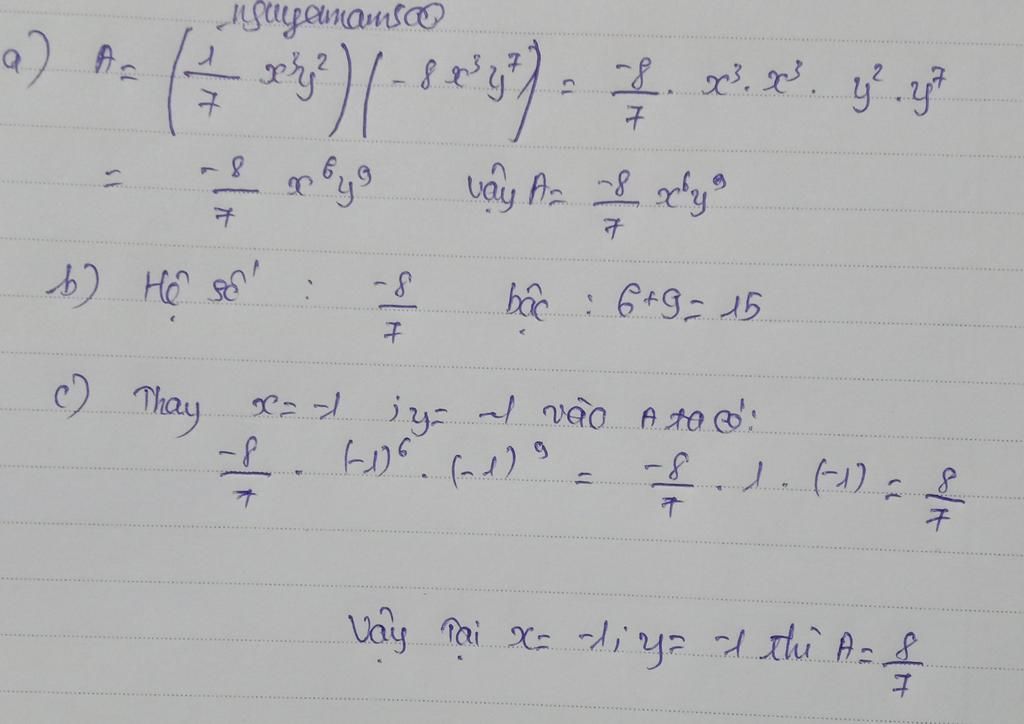 nguyenams00
a) A = (1/7 x³y²)(-8x³y⁷) = -8/7 . x³. x³. y² . y⁷
= -8/7 x⁶y⁹ vậy A = -8/7 x⁶y⁹
b) Hệ số : -8/7 bậc : 6+9=15
c) Thay x = -1 ; y = -1 vào A ta có:
-8/7 . (-1)⁶ . (-1)⁹ = -8/7 . 1 . (-1) = 8/7
Vậy Tại x = -1; y = -1 thì A = 8/7